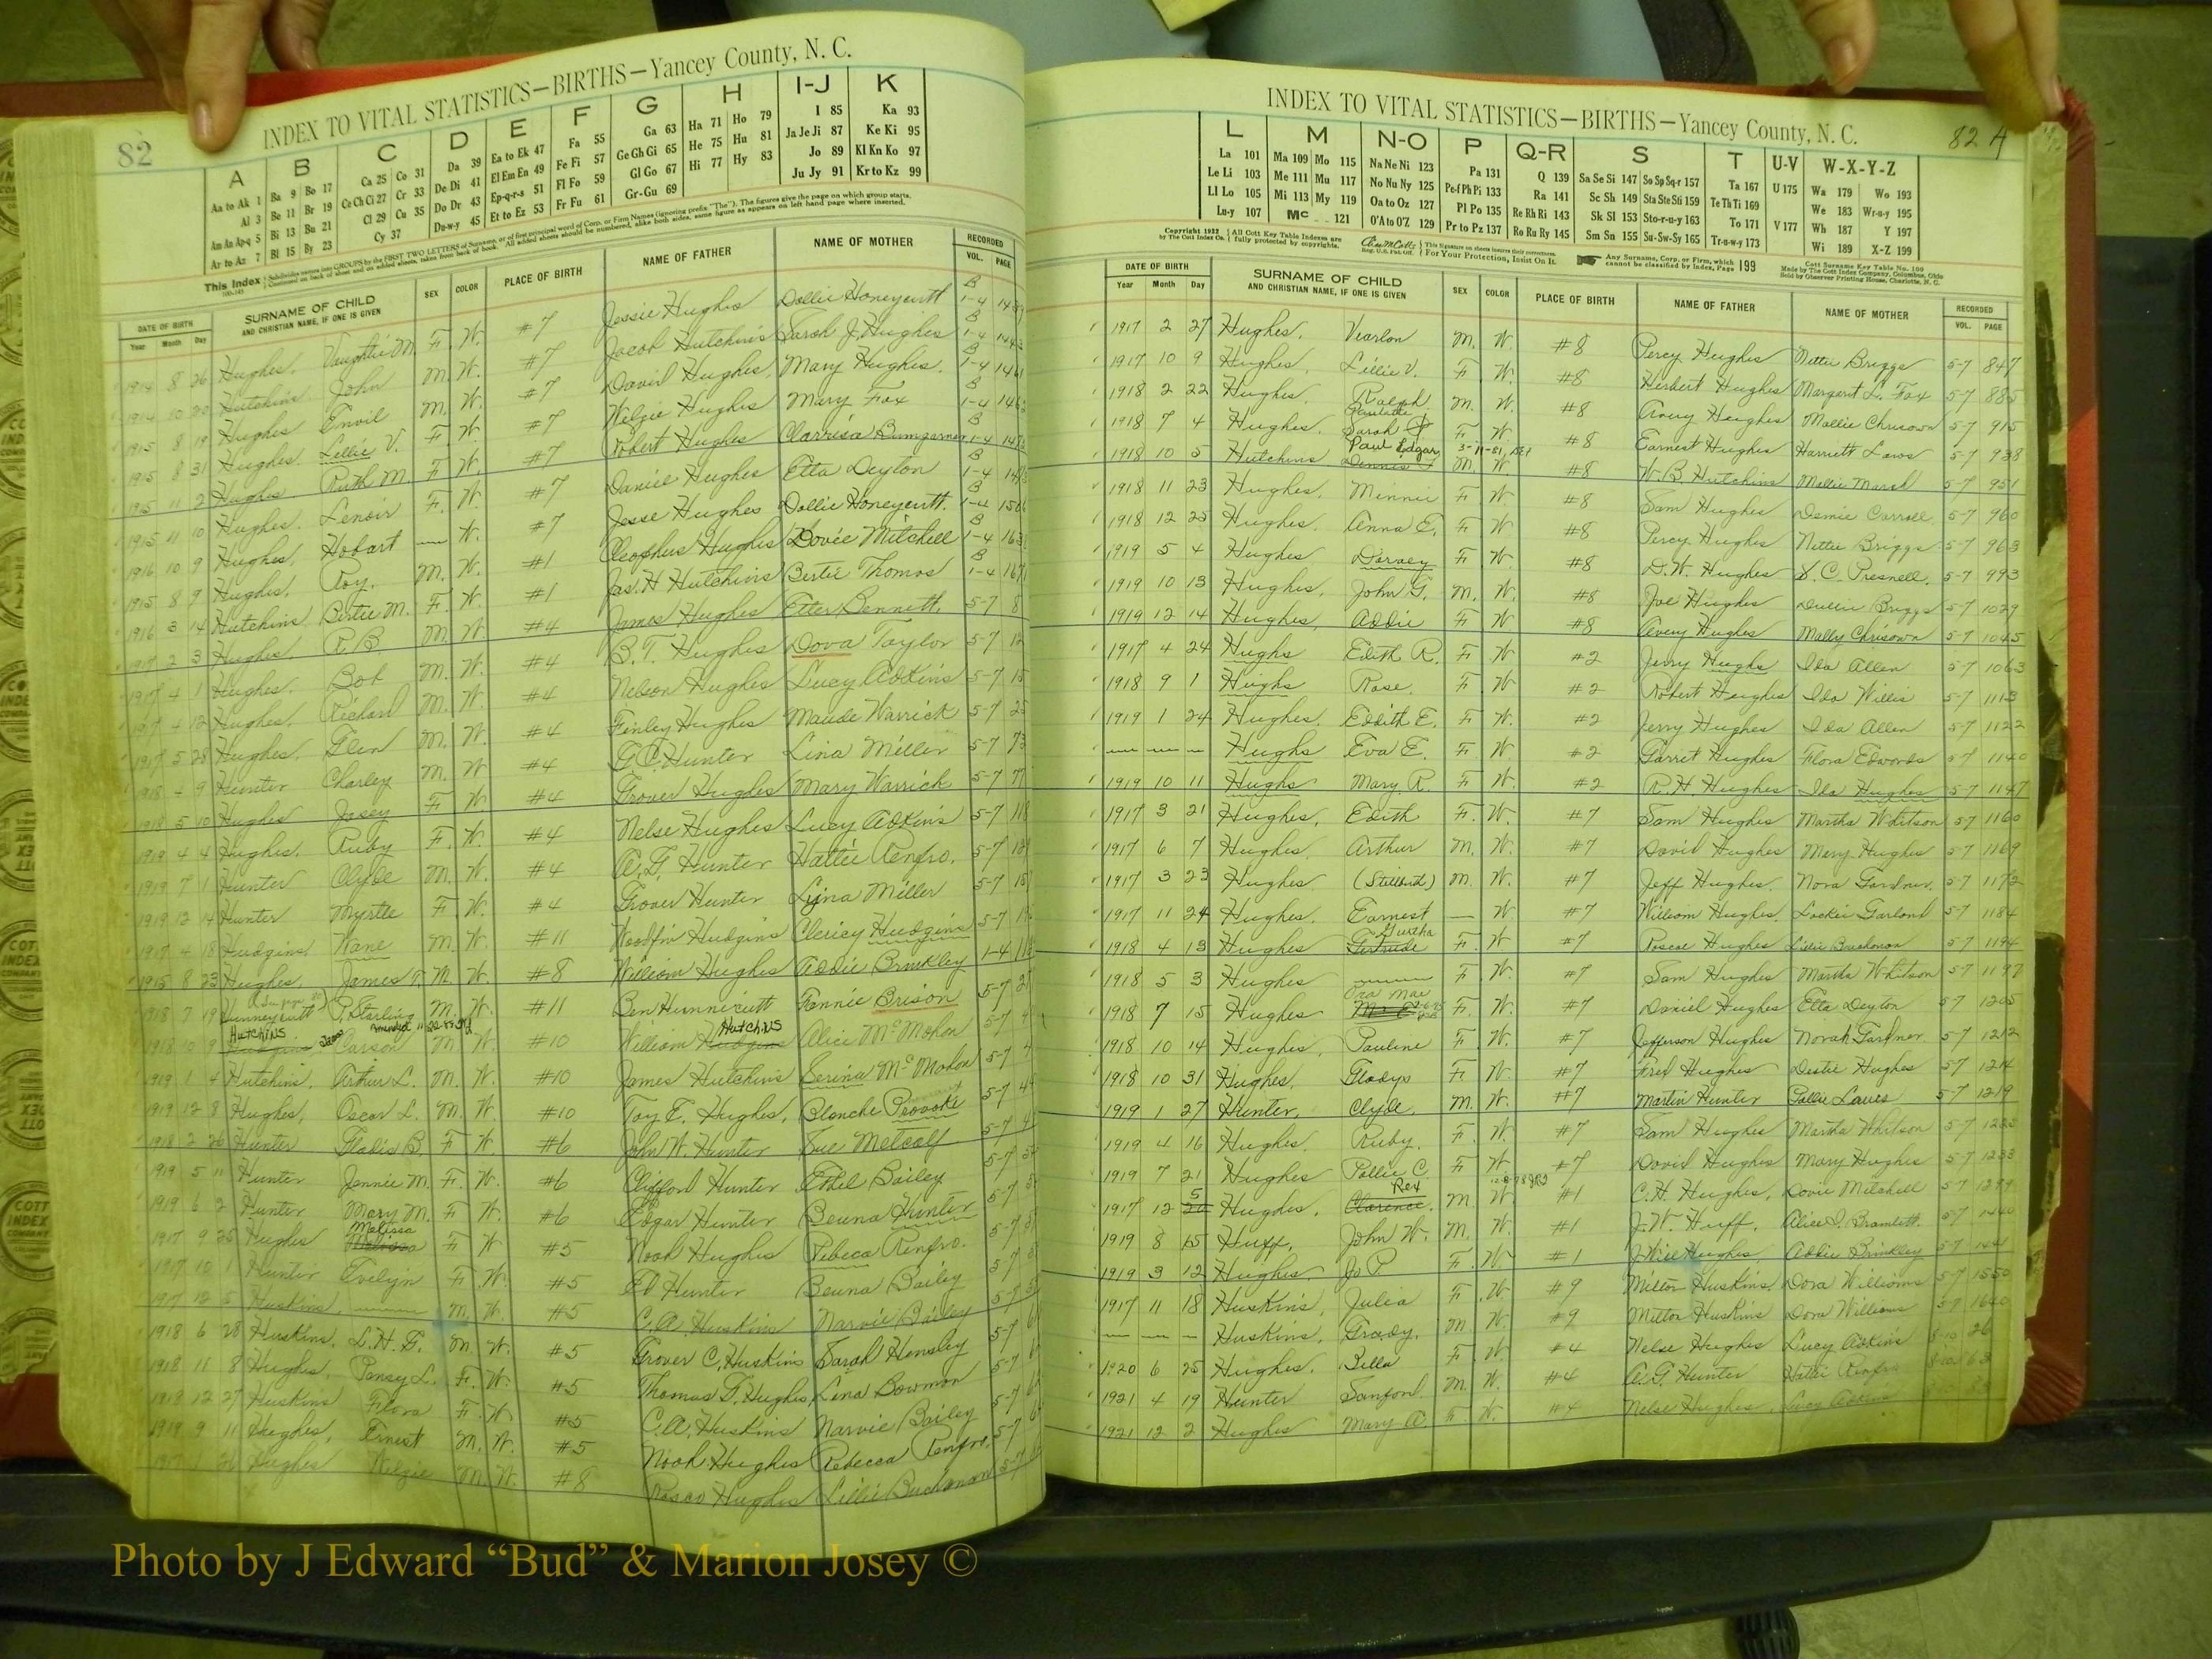 82
INDEX TO VITAL STATISTICS—BIRTHS—Yancey County, N. C.
A B C D E F G H I-J K
Aa to Ak 1 Ba 9 Bo 17 Ca 25 Co 31 Da 39 Ea to Ek 47 Fa 55 Ga 63 Ha 71 Ho 79 I 85 Ka 93
Al 3 Be 11 Br 19 Ce Ch Ci 27 Cr 33 De Di 41 El Em En 49 Fe Fi 57 Ge Gh Gi 65 He 75 Hu 81 Ja Je Ji 87 Ke Ki 95
Am An Ap-q 5 Bi 13 Bu 21 Cl 29 Cu 35 Do Dr 43 Ep-q-r-s 51 Fl Fo 59 Gl Go 67 Hi 77 Hy 83 Jo 89 Kl Kn Ko 97
Ar to Az 7 Bl 15 By 23 Cy 37 Du-w-y 45 Et to Ez 53 Fr Fu 61 Gr-Gu 69 Ju Jy 91 Kr to Kz 99
This Index
DATE OF BIRTH SURNAME OF CHILD SEX COLOR PLACE OF BIRTH NAME OF FATHER NAME OF MOTHER RECORDED
Year Month Day AND CHRISTIAN NAME, IF ONE IS GIVEN VOL. PAGE
1914 8 26 Hughes. Vaughtie M. F. W. #7 Jessie Hughes Dollie Honeycutt B 1-4
Hutchins John M. W. #7 Jacob Hutchins Sarah J. Hughes B 1-4
1915 8 19 Hughes Envil M. W. #7 David Hughes. Mary Hughes. B 1-4
1915 8 31 Hughes. Lillie V. F. W. #7 Wilzie Hughes Mary Fox B 1-4
1915 11 2 Hughes Ruth M. F. W. #7 Robert Hughes Clarrisa Bumgarner 1-4
1915 11 10 Hughes. Lenoir F. W. #7 Daniel Hughes Etta Deyton B 1-4
1916 10 9 Hughes, Hobart — W. #7 Jesse Hughes Dollie Honeycutt. B 1-4
1915 8 9 Hughes, Roy. M. W. #1 Cleophus Hughes Dovie Mitchell B 1-4
1916 3 14 Hutchins Bertie M. F. W. #1 Jas. H Hutchins Bertie Thomas B 1-4
1917 2 3 Hughes. R. B. M. W. #4 James Hughes Etter Bennett. 5-7 8
1917 4 1 Hughes. Bob M. W. #4 B. T. Hughes Dova Taylor 5-7
1917 4 12 Hughes, Richard M. W. #4 Nelson Hughes Lucy Adkins 5-7
1917 5 28 Hughes, Glen M. W. #4 Finley Hughes Maude Warrick 5-7
1918 4 9 Hunter Charley M. W. #4 G. C. Hunter Lina Miller 5-7
1918 5 10 Hughes Josey F. W. #4 Grover Hughes Mary Warrick 5-7
1919 4 4 Hughes. Ruby F. W. #4 Nelse Hughes Lucy Adkins 5-7
1919 7 1 Hunter Clyde M. W. #4 A. G. Hunter Hattie Renfro. 5-7
1919 12 14 Hunter Myrtle F. W. #4 Grover Hunter Lina Miller 5-7
1917 4 18 Hudgins, Wane M. W. #11 Woolfin Hudgins Clericy Hudgins 5-7
1915 8 23 Hughes. James T. M. W. #8 William Hughes Addie Brinkley 1-4
1918 7 19 Hunneycutt P. Starling M. W. #11 Ben Hunnicutt Fannie Brison 5-7
1918 10 9 Hutchins Carson M. W. #10 William Hutchins Alice McMohon 5-7
1919 1 4 Hutchins. Arthur L. M. W. #10 James Hutchins Serina McMohon 5-7
1919 12 8 Hughes, Oscar L. M. W. #10 Toy E. Hughes, Blanche Provoke 5-7
1918 2 26 Hunter Gladis B. F. W. #6 John W. Hunter Sue Metcalf 5-7
1919 5 11 Hunter Jennie M. F. W. #6 Clifford Hunter Ethel Bailey 5-7
1919 6 2 Hunter Mary M. F. W. #6 Edgar Hunter Beuna Hunter 5-7
1917 9 25 Hughes Malissa F. W. #5 Noah Hughes Rebeca Renfro. 5-7
1917 10 1 Hunter Evelyn F. W. #5 Ed Hunter Beuna Bailey 5-7
1917 12 5 Huskins, — M. W. #5 C. A. Huskins Narvie Bailey 5-7
1918 6 28 Huskins, L. H. G. M. W. #5 Grover C. Huskins Sarah Hensley 5-7
1918 11 8 Hughes, Pansy L. F. W. #5 Thomas D. Hughes Lena Bowman 5-7
1918 12 27 Huskins Flora F. W. #5 C. A. Huskins Narvie Bailey 5-7
1919 9 11 Hughes, Ernest M. W. #5 Noah Hughes Rebecca Renfro. 5-7
Hughes Wilzie M. W. #8 Rosco Hughes Lillie Buchanan 5-7
82 A
INDEX TO VITAL STATISTICS—BIRTHS—Yancey County, N. C.
L M N-O P Q-R S T U-V W-X-Y-Z
La 101 Ma 109 Mo 115 Na Ne Ni 123 Pa 131 Q 139 Sa Se Si 147 So Sp Sq-r 157 Ta 167 U 175 Wa 179 Wo 193
Le Li 103 Me 111 Mu 117 No Nu Ny 125 Pe-f Ph Pi 133 Ra 141 Sc Sh 149 Sta Ste Sti 159 Te Th Ti 169 We 183 Wr-u-y 195
Ll Lo 105 Mi 113 My 119 Oa to Oz 127 Pl Po 135 Re Rh Ri 143 Sk Sl 153 Sto-r-u-y 163 To 171 V 177 Wh 187 Y 197
Lu-y 107 Mc 121 O'A to O'Z 129 Pr to Pz 137 Ro Ru Ry 145 Sm Sn 155 Su-Sw-Sy 165 Tr-u-w-y 173 Wi 189 X-Z 199
Copyright 1922 By The Cott Index Co. All Cott Key Table Indexes are fully protected by copyrights. For Your Protection, Insist On It. Any Surname, Corp. or Firm, which cannot be classified by Index, Page 199
Cott Surname Key Table No. 100
Made by The Cott Index Company, Columbus, Ohio
Sold by Observer Printing House, Charlotte, N. C.
DATE OF BIRTH SURNAME OF CHILD SEX COLOR PLACE OF BIRTH NAME OF FATHER NAME OF MOTHER RECORDED
Year Month Day AND CHRISTIAN NAME, IF ONE IS GIVEN VOL. PAGE
1917 2 27 Hughes, Vearlon M. W. #8 Percy Hughes Nettie Briggs 5-7 847
1917 10 9 Hughes, Lillie V. F. W. #8 Herbert Hughes Margaret L. Fox 5-7 885
1918 2 22 Hughes, Ralph M. W. #8 Avery Hughes Mollie Chrisown 5-7 915
1918 7 4 Hughes. Sarah F. W. #8 Earnest Hughes Harriett Laws 5-7 938
1918 10 5 Hutchins Paul Edgar M. W. #8 W. B. Hutchins Mollie Marsh 5-7 951
1918 11 23 Hughes, Minnie F. W. #8 Sam Hughes Demie Carroll 5-7 960
1918 12 25 Hughes. Anna E. F. W. #8 Percy Hughes Nettie Briggs 5-7 963
1919 5 4 Hughes Dorsey F. W. #8 D. W. Hughes D. C. Presnell. 5-7 993
1919 10 13 Hughes, John G. M. W. #8 Joe Hughes Dullie Briggs 5-7 1029
1919 12 14 Hughes, Addie F. W. #8 Avery Hughes Molly Chrisown 5-7 1045
1917 4 24 Hughs Edith R. F. W. #2 Jerry Hughs Ida Allen 5-7 1063
1918 9 1 Hughs Rose. F. W. #2 Robert Hughes Ida Willis 5-7 1113
1919 1 24 Hughes. Edith E. F. W. #2 Jerry Hughes Ida Allen 5-7 1122
— — — Hughs Eva E. F. W. #2 Garrit Hughes Flora Edwards 5-7 1140
1919 10 11 Hughs Mary R. F. W. #2 R. H. Hughes Ida Hughes 5-7 1147
1917 3 21 Hughes, Edith F. W. #7 Sam Hughes Martha Whitson 5-7 1160
1917 6 7 Hughes. Arthur M. W. #7 David Hughes Mary Hughes 5-7 1169
1917 3 23 Hughes (Stillbirth) M. W. #7 Jeff Hughes. Nora Gardner. 5-7 1172
1917 11 24 Hughes. Earnest — W. #7 William Hughes. Lockie Garland 5-7 1184
1918 4 13 Hughes Gertrude Gurtha F. W. #7 Roscoe Hughes Lillie Buchanan 5-7 1194
1918 5 3 Hughes — F. W. #7 Sam Hughes Martha Whitson 5-7 1197
1918 7 15 Hughes Ora Mae F. W. #7 Daniel Hughes Etta Deyton 5-7 1205
1918 10 14 Hughes, Pauline F. W. #7 Jefferson Hughes Norah Gardner 5-7 1212
1918 10 31 Hughes. Gladys F. W. #7 Fred Hughes Destie Hughes 5-7 1214
1919 1 27 Hunter, Clyde. M. W. #7 Martin Hunter Pollie Laws 5-7 1219
1919 4 16 Hughes. Ruby. F. W. #7 Sam Hughes Martha Whitson 5-7
1919 7 21 Hughes Pollie C. F. W. #7 David Hughes Mary Hughes 5-7 1233
1917 12 5 Hughes, Clarence Rex M. W. #1 C. H. Hughes, Dovie Mitchell 5-7
1919 8 15 Huff, John W. M. W. #1 J. W. Huff. Alice I. Bramlett. 5-7
1919 3 12 Hughes. Jo P. F. W. #1 J. Will Hughes Addie Brinkley 5-7
1917 11 18 Huskins, Julia F. W. #9 Milton Huskins. Dora Williams 5-7 1550
— — — Huskins, Grady. M. W. #9 Milton Huskins Dora Williams 5-7 1640
1920 6 25 Hughes. Bella F. W. #4 Nelse Hughes Lucy Adkins 8-10 26
1921 4 19 Hunter Sanford M. W. #4 A. G. Hunter Hattie Renfro 8-10 63
1921 12 2 Hughes Mary A. F. W. #4 Nelse Hughes. Lucy Adkins
Photo by J Edward “Bud” & Marion Josey ©